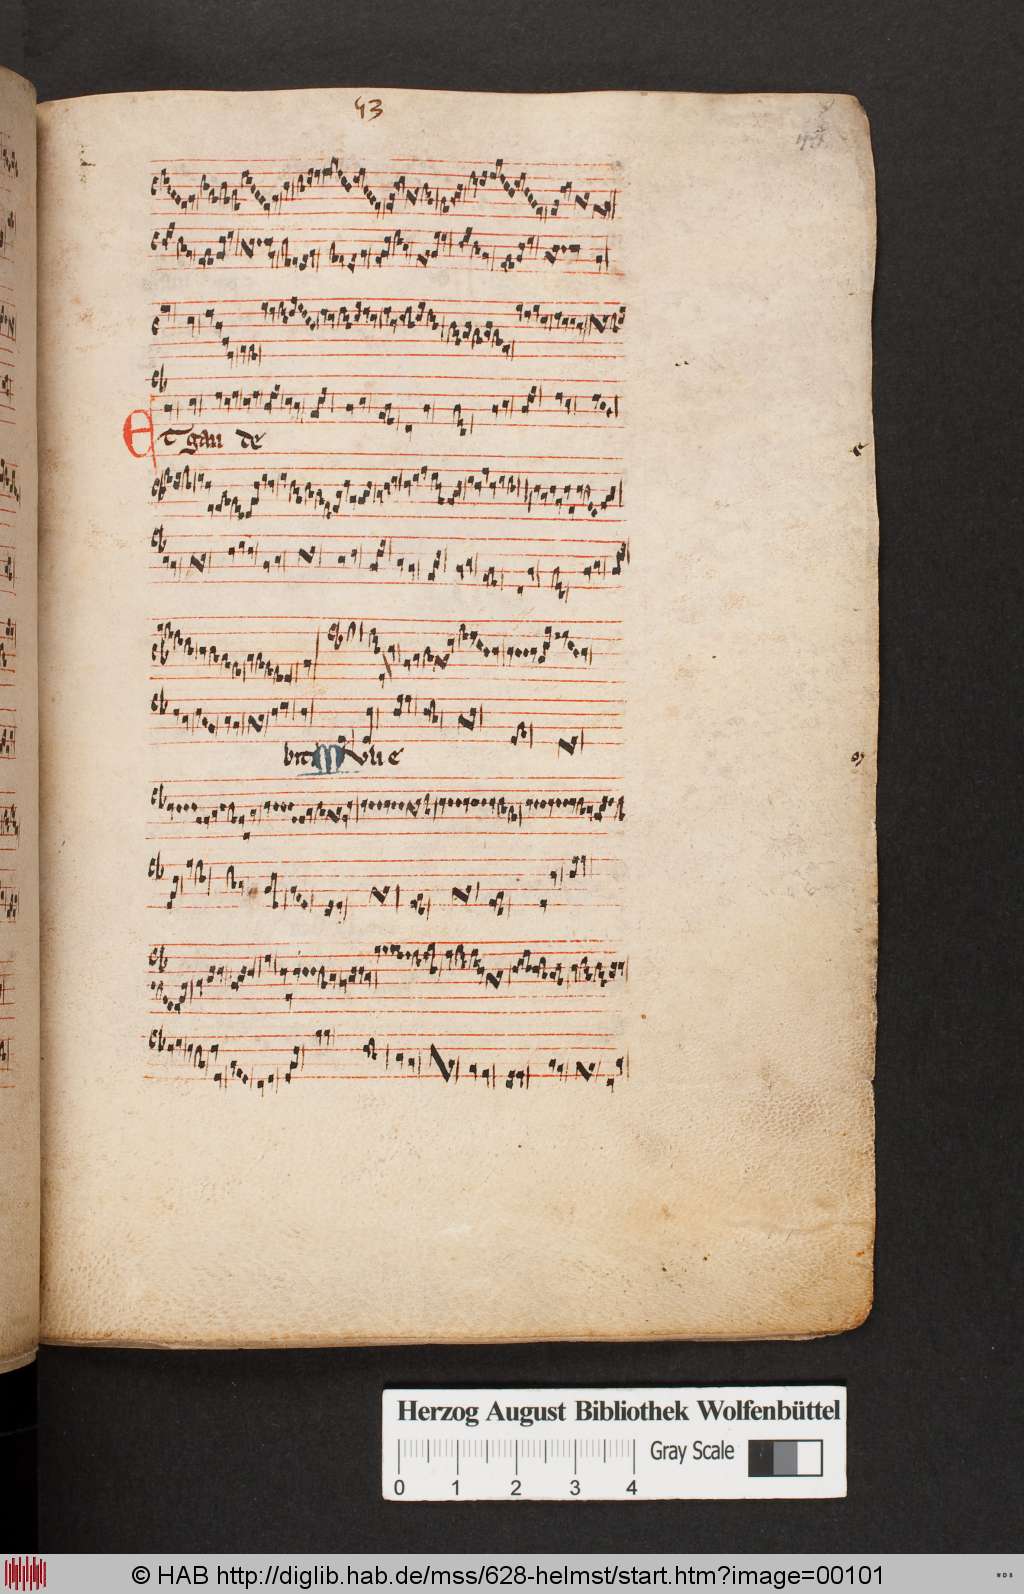 43
Et gau de
bit Mulie
Herzog August Bibliothek Wolfenbüttel
Gray Scale
0 1 2 3 4
© HAB http://diglib.hab.de/mss/628-helmst/start.htm?image=00101